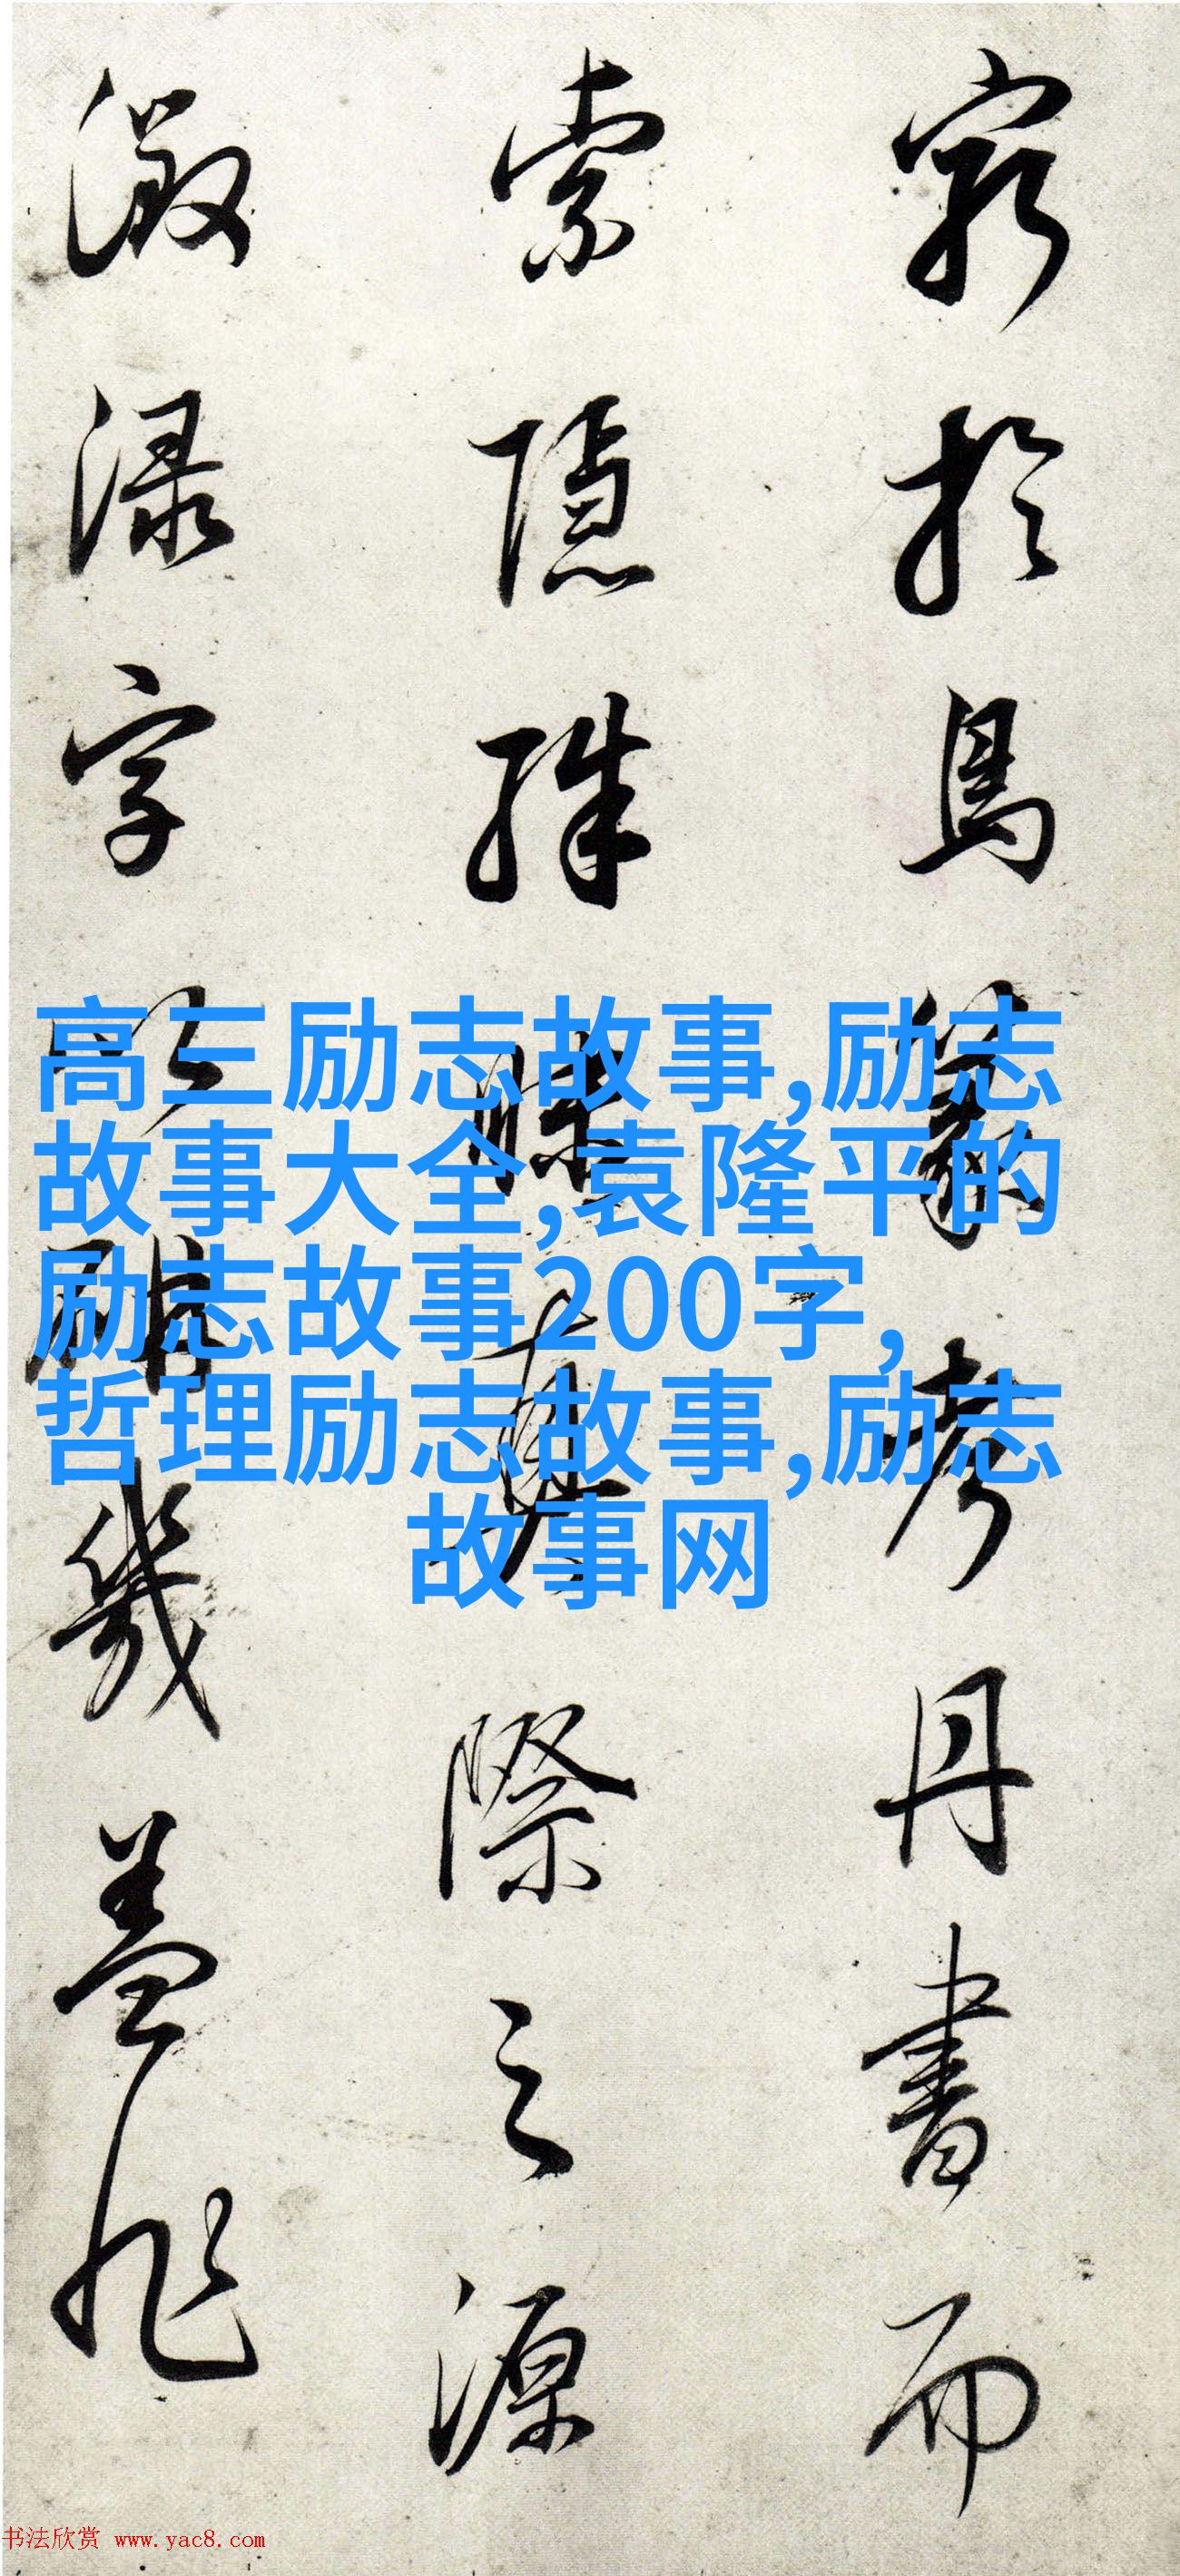 窮於鳥篆考丹書而
索隱殊際之源
字幾蓋非
高三励志故事,励志
故事大全,袁隆平的
励志故事200字,
哲理励志故事,励志
故事网
书法欣赏 www.yac8.com